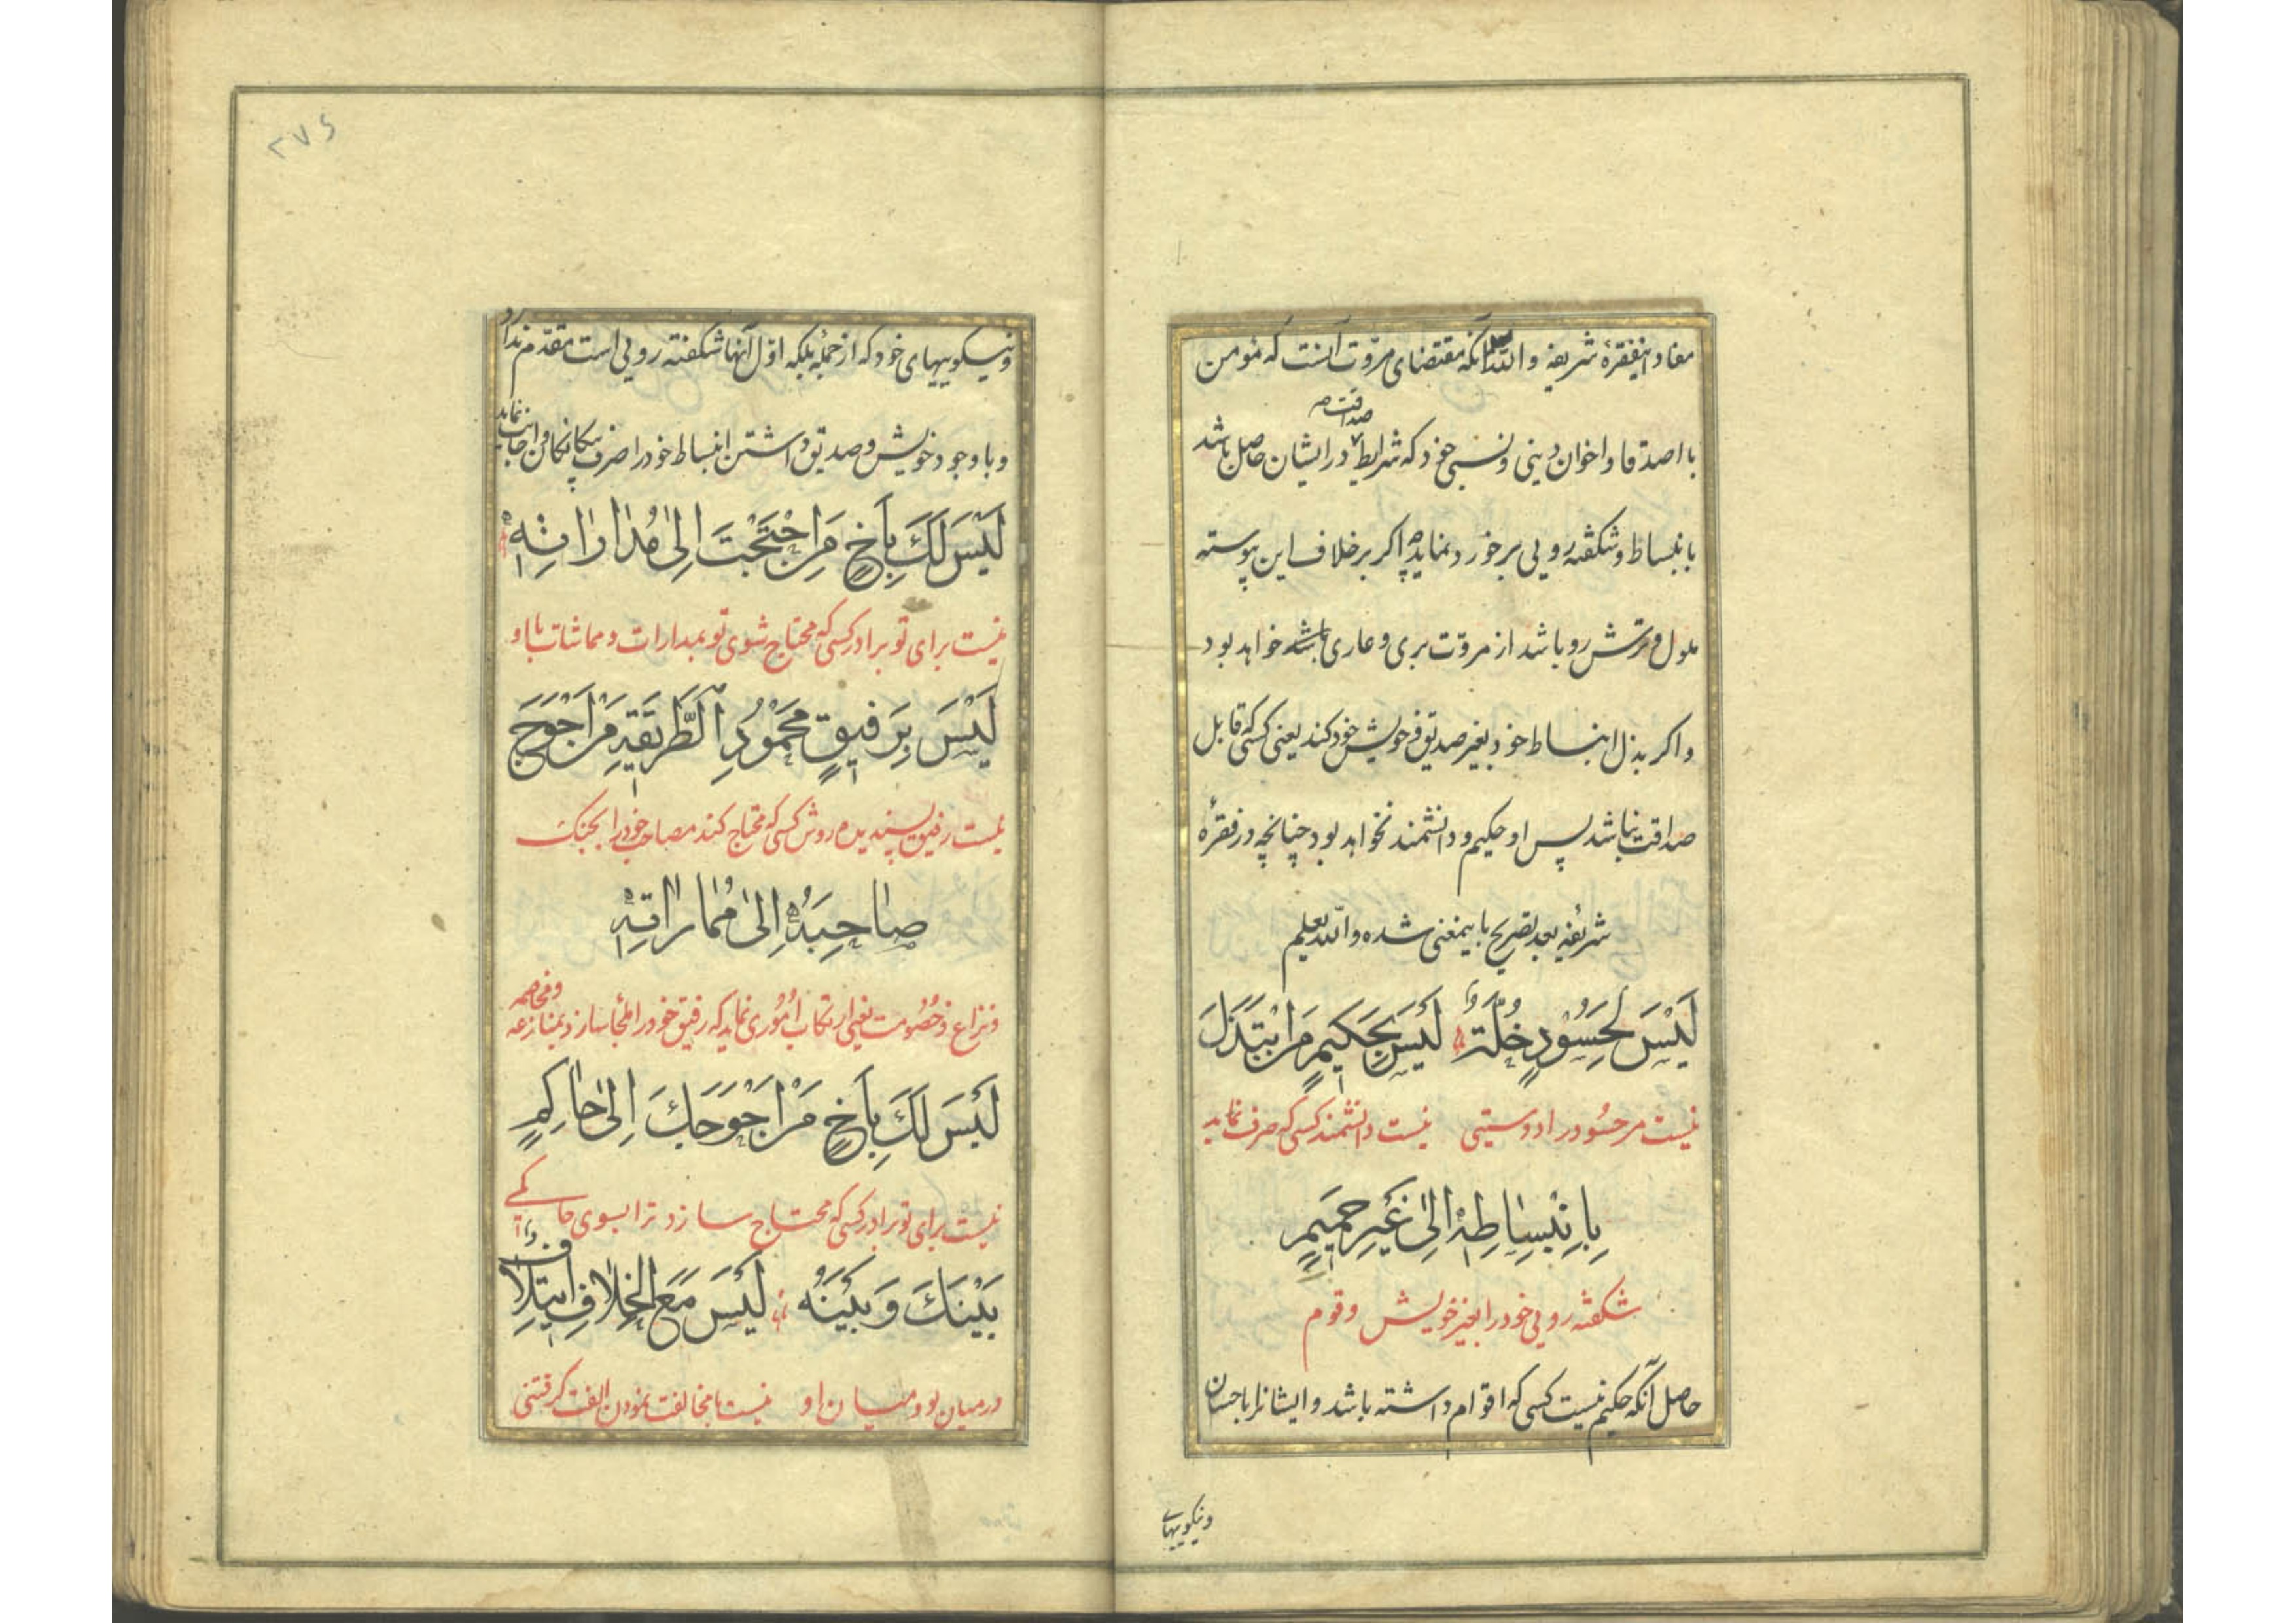 مفاد اینفقرهٔ شریفه والله اعلم آنکه مقتضای مروّت آنست که مؤمن
با اصدقا و اخوان دینی و نسبی خود که شرایط صداقت در ایشان حاصل باشد
بانبساط و شکفته رویی برخورد نماید چه اگر برخلاف این پیوسته
ملول و ترش رو باشد از مروّت بری و عاری خواهد بود
و اکر بذل انبساط خود بغیر صدیق و خویش خود کند یعنی کسی که قابل
صداقت نباشد پس او حکیم و دانشمند نخواهد بود چنانچه در فقرهٔ
شریفه بعد تصریح باینمعنی شده والله یعلم
لَیْسَ لِحَسُوْدٍ خُلَّةٌ لَیْسَ بِحَکیمٍ مَنِ ابْتَذَلَ
نیست مرحسود را دوستیی نیست دانشمند کسی که صرف نماید
بِاِنْبِسٰاطِهٖ اِلیٰ غَیْرِ حَمیمٍ
شکفته رویی خود را بغیر خویش و قوم
حاصل آنکه حکیم نیست کسی که اقوام داشته باشد و ایشانرا باحسان
ونیکوییهای
۲۷۶
ونیکوییهای خود که از جمله بلکه اوّل آنها شکفته رویی است مقدّم ندارد
و با وجود خویش و صدیق داشتن انبساط خود را صرف بیکانکان و اجانب نماید
لَیْسَ لَكَ بِاَخٍ مَنِ احْتَجْتَ اِلیٰ مُدٰارٰاتِهٖ
نیست برای تو برادر کسی که محتاج شوی تو بمدارات و مماشات با او
لَیْسَ بِرَفیقٍ مَحْمُوْدِ الطَّریقَةِ مَنْ اَحْوَجَ
نیست رفیق پسندیده روش کسی که محتاج کند مصاحب خود را بجنك
صٰاحِبَهُ اِلیٰ مُمٰارٰاتِهٖ
و نزاع و خصومت یعنی ارتکاب اموری نماید که رفیق خود را ملجأ سازد بمنازعه و مخاصمه
لَیْسَ لَكَ بِاَخٍ مَنْ اَحْوَجَكَ اِلیٰ حٰاکِمٍ
نیست برای تو برادر کسی که محتاج سازد ترا بسوی حاکمی
بَیْنَكَ وَ بَیْنَهُ لَیْسَ مَعَ الْخِلٰافِ ایتِلٰافٌ
درمیان تو و میان او نیست با مخالفت نمودن الفت گرفتنی